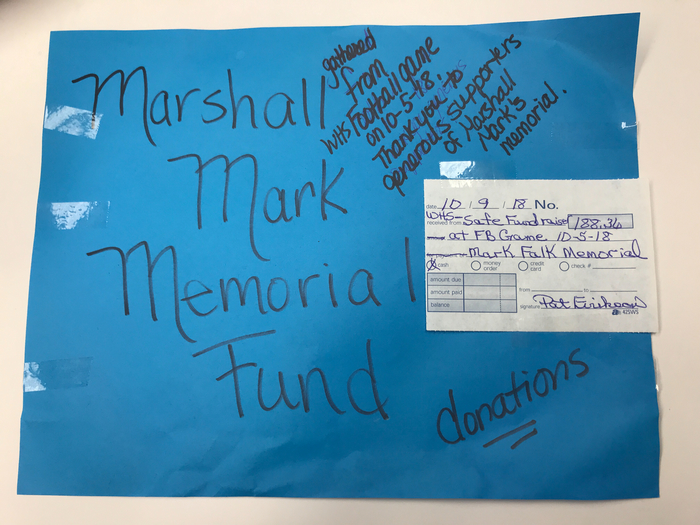 Marshall
Mark
Memorial
Fund
gathered
from
WHS Football game
on 10-5-18
Thank you to
generous supporters
of Marshall
Mark's
memorial.
donations
date 10/9/18 No.
received from WHS-Safe Fundraiser 188.36
at FB Game 10-5-18
Mark Falk Memorial
cash money order credit card check #
amount due
amount paid
balance
from to
signature Pat
42SWS